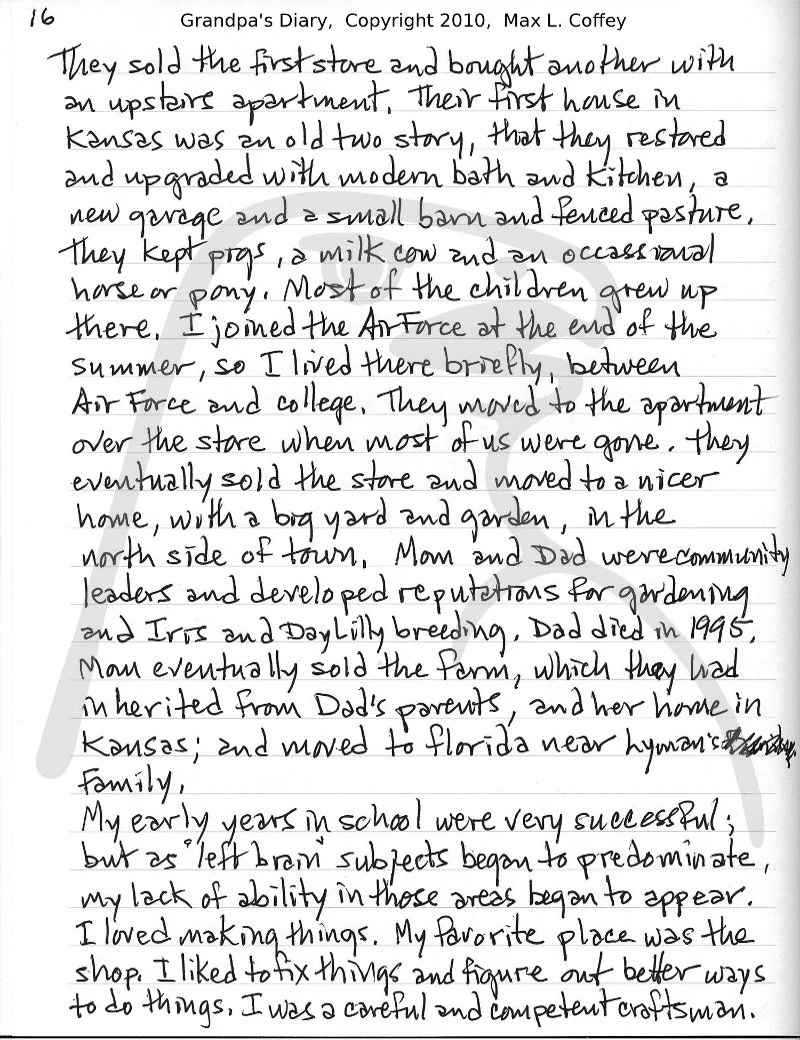 16
Grandpa's Diary, Copyright 2010, Max L. Coffey
They sold the first store and bought another with
an upstairs apartment. Their first house in
Kansas was an old two story, that they restored
and upgraded with modern bath and kitchen, a
new garage and a small barn and fenced pasture.
They kept pigs, a milk cow and an occassional
horse or pony. Most of the children grew up
there. I joined the Air Force at the end of the
summer, so I lived there briefly, between
Air Force and college. They moved to the apartment
over the store when most of us were gone. They
eventually sold the store and moved to a nicer
home, with a big yard and garden, in the
north side of town. Mom and Dad were community
leaders and developed reputations for gardening
and Iris and DayLilly breeding. Dad died in 1995.
Mom eventually sold the farm, which they had
inherited from Dad's parents, and her home in
Kansas; and moved to Florida near hyman's
family.
My early years in school were very successful;
but as "left brain" subjects began to predominate,
my lack of ability in those areas began to appear.
I loved making things. My favorite place was the
shop. I liked to fix things and figure out better ways
to do things. I was a careful and competent craftsman.